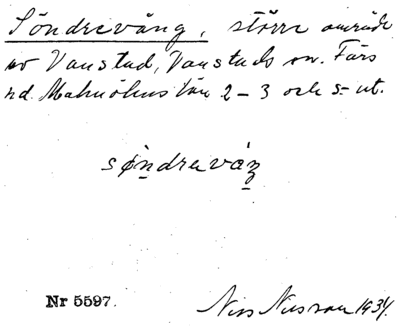 Söndrevång, större område
av Vanstad, Vanstads sn. Färs
hd. Malmöhus län 2-3 och 5 ut.
søndrevåŋ
Nr 5597.
Nils Nilsson 1934.